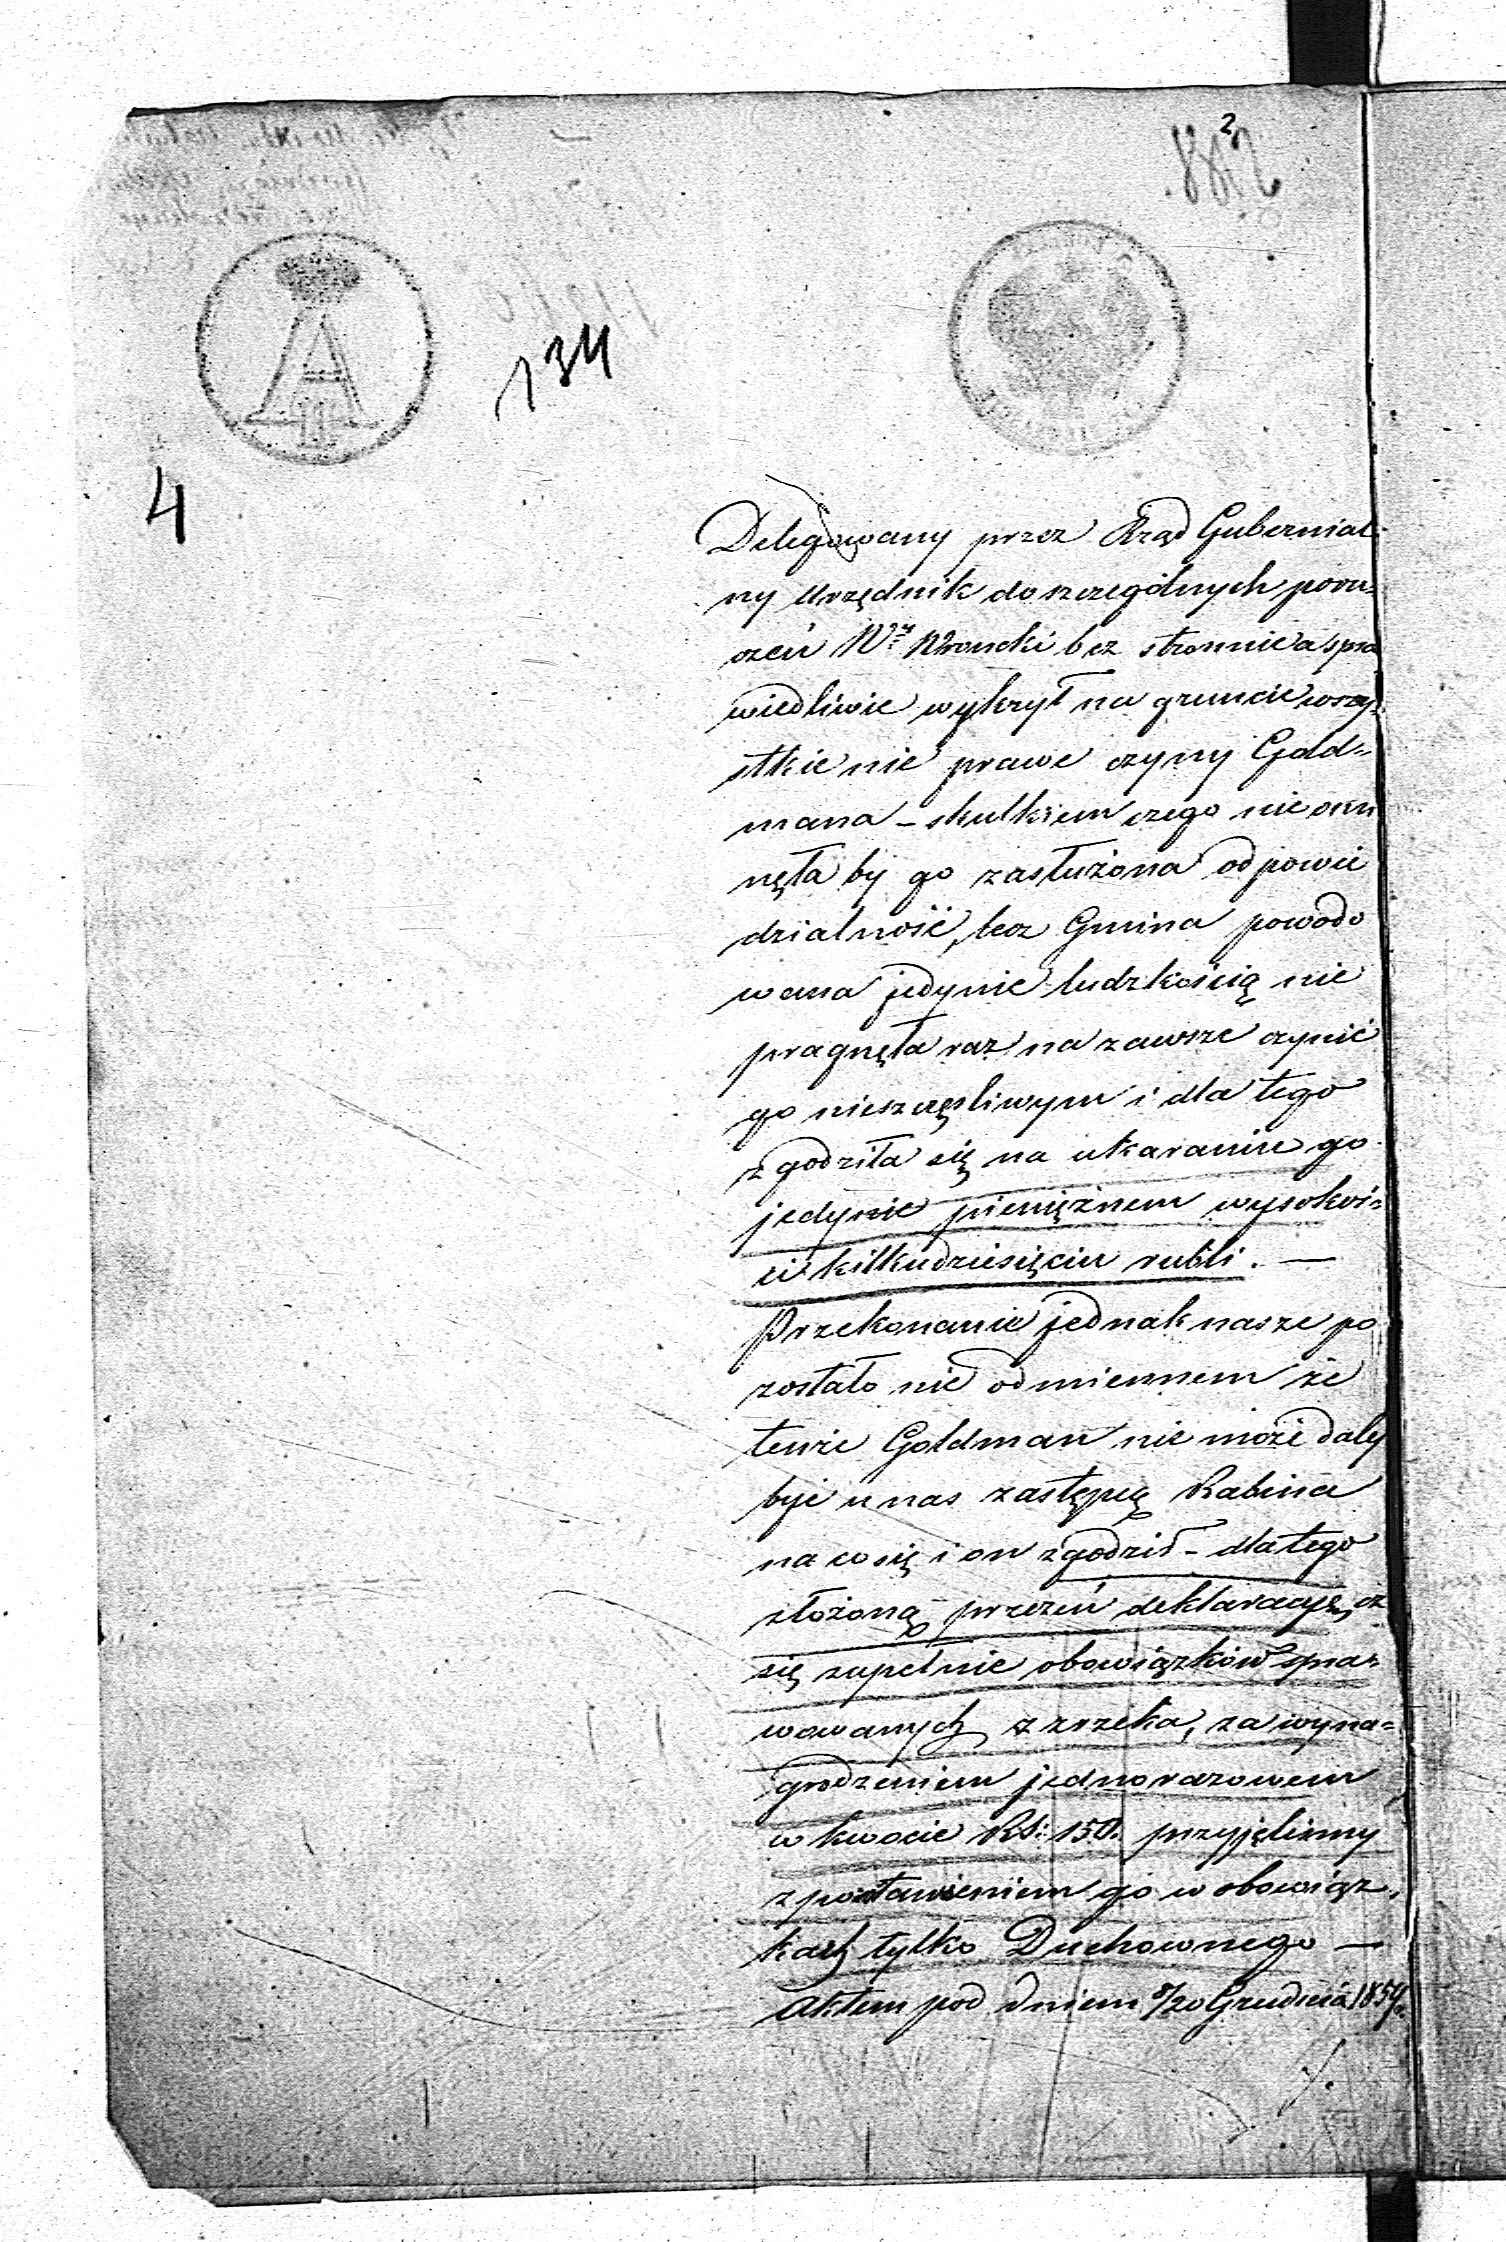 2
134
4
Delegowany przez Rząd Gubernial-
ny Urzędnik do szczególnych poru-
czeń Wy Wroncki bez stronnie a spra
wiedliwie wykrył na gruncie wszy-
stkie nie prawe czyny Gold-
mana – skutkiem czego nie omi
nęła by go zasłużona odpowie
dzialność, lecz Gmina powodo
wana jedynie ludzkością nie
pragnęła raz na zawsze czynić
go nieszczęśliwym i dla tego
zgodziła się na ukaranie go
jedynie pieniężnem wysokoś-
ci kilkudziesięciu rubli. —
Przekonanie jednak nasze po
zostało nie odmiennem że
tenże Goldman nie może dalej
być u nas zastępcą Rabina
na co się i on zgodził – dla tego
złożoną przezeń deklaracyę, iż
się zupełnie obowiązków spra-
wowanych zrzeka, za wyna-
grodzeniem jednorazowem
w kwocie RS: 150. przyjęliśmy
z postawieniem go w obowiąz-
kach tylko Duchownego —
Aktem pod dniem 8/20 Grudnia 1859